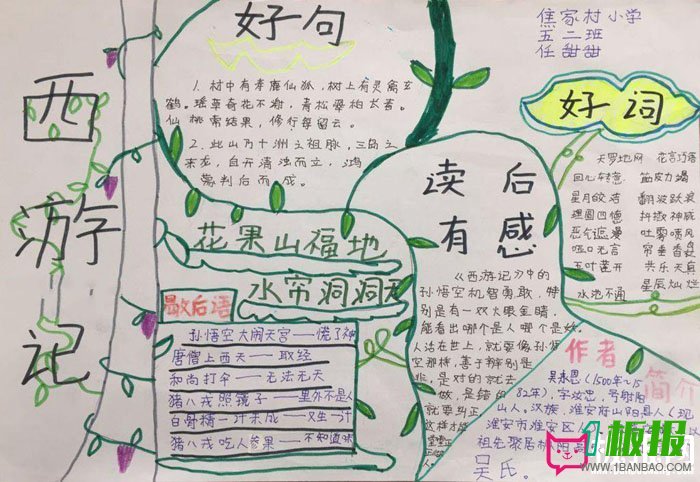 西游记
好句
1.村中有孝鹿仙狐,树上有灵禽玄
鹤。瑶草奇花不谢,青松翠柏长春。
仙桃常结果,修行每留云。
2.此山乃十洲之祖脉,三岛之
来龙,自开清浊而立,鸿
蒙判后而成。
花果山福地
水帘洞洞天
歇后语
孙悟空大闹天宫——慌了神
唐僧上西天——取经
和尚打伞——无法无天
猪八戒照镜子——里外不是人
白骨精一计未成——又生一计
猪八戒吃人参果——不知道味
焦家村小学
五二班
任甜甜
好词
天罗地网 花言巧语
回心转意 筋疲力竭
星月皎洁 翻波跃浪
抖擞神威
吐雾喷风
哑口无言
共乐天真
星辰灿烂
水泄不通
读后
有感
《西游记》中的
孙悟空机智勇敢,特
别是有一双火眼金睛,
能看出哪个是人哪个是妖,
人活在世上,就要像孙悟
空那样,善于辩别是
非,是对的就去
做,是错的
就要纠正
这样才能
堂堂正
正做人。
作者
简介
吴承恩(1500年~15
82年),字汝忠,号射阳
山人。汉族,淮安府山阳县人(现
淮安市淮安区人
祖先聚居
吴氏。
板报
WWW.1BANBAO.COM